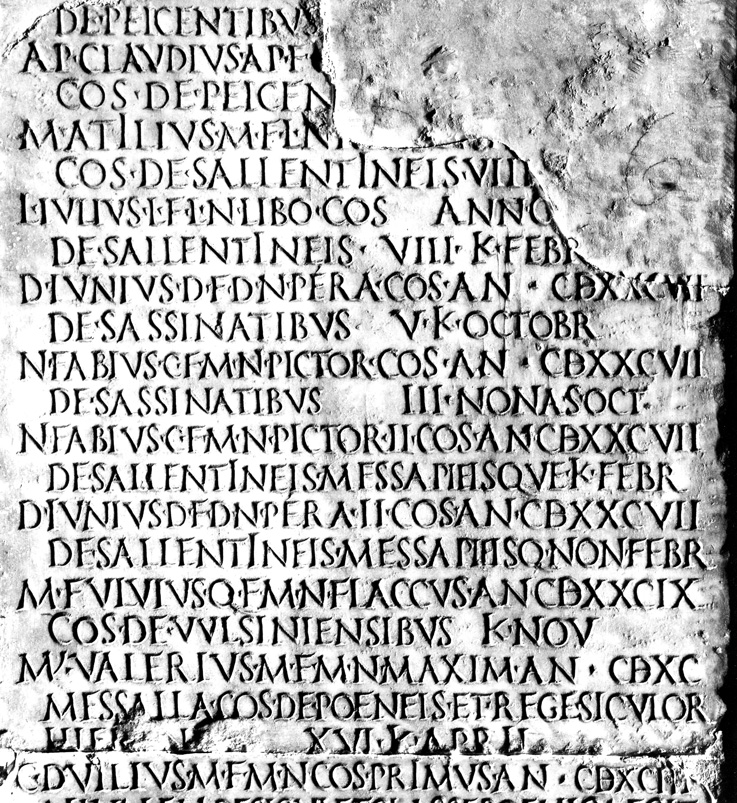 DE·PEICENTIBV
AP·CLAVDIVS·AP·F
COS·DE·PEICEN
M·ATILIVS·M·F·L·N
COS·DE·SALLENTINEIS·VIIII
L·IVLIVS·L·F·L·N·LIBO·COS ANNO
DE·SALLENTINEIS· VIII·K·FEBR
D·IVNIVS·D·F·D·N·PÉRA·COS·AN · CDXXCVII
DE·SASSINATIBVS V·K·OCTOBR
N·FABIVS·C·F·M·N·PICTOR·COS·AN · CDXXCVII
DE·SASSINATIBVS III·NONAS·OCT·
N·FABIVS·C·F·M·N·PICTOR·II·COS·AN·CDXXCVII
DE·SALLENTINEIS·MESSAPIEISQVE·K·FEBR
D·IVNIVS·D·F·D·N·PÉRA·II·COS·AN·CDXXCVII
DE·SALLENTINEIS·MESSAPIEISQ·NON·FEBR
M·FVLVIVS·Q·F·M·N·FLACCVS·AN·CDXXCIX
COS·DE·VVLSINIENSIBVS K·NOV
M'·VALERIVS·M·F·M·N·MAXIM·AN · CDXC
MESSALLA·COS·DE·POENEIS·ET·REGE·SICVLOR
HIER XVI·K·APRIL
C·DVILIVS·M·F·M·N·COS·PRIMVS·AN · CDXCIII